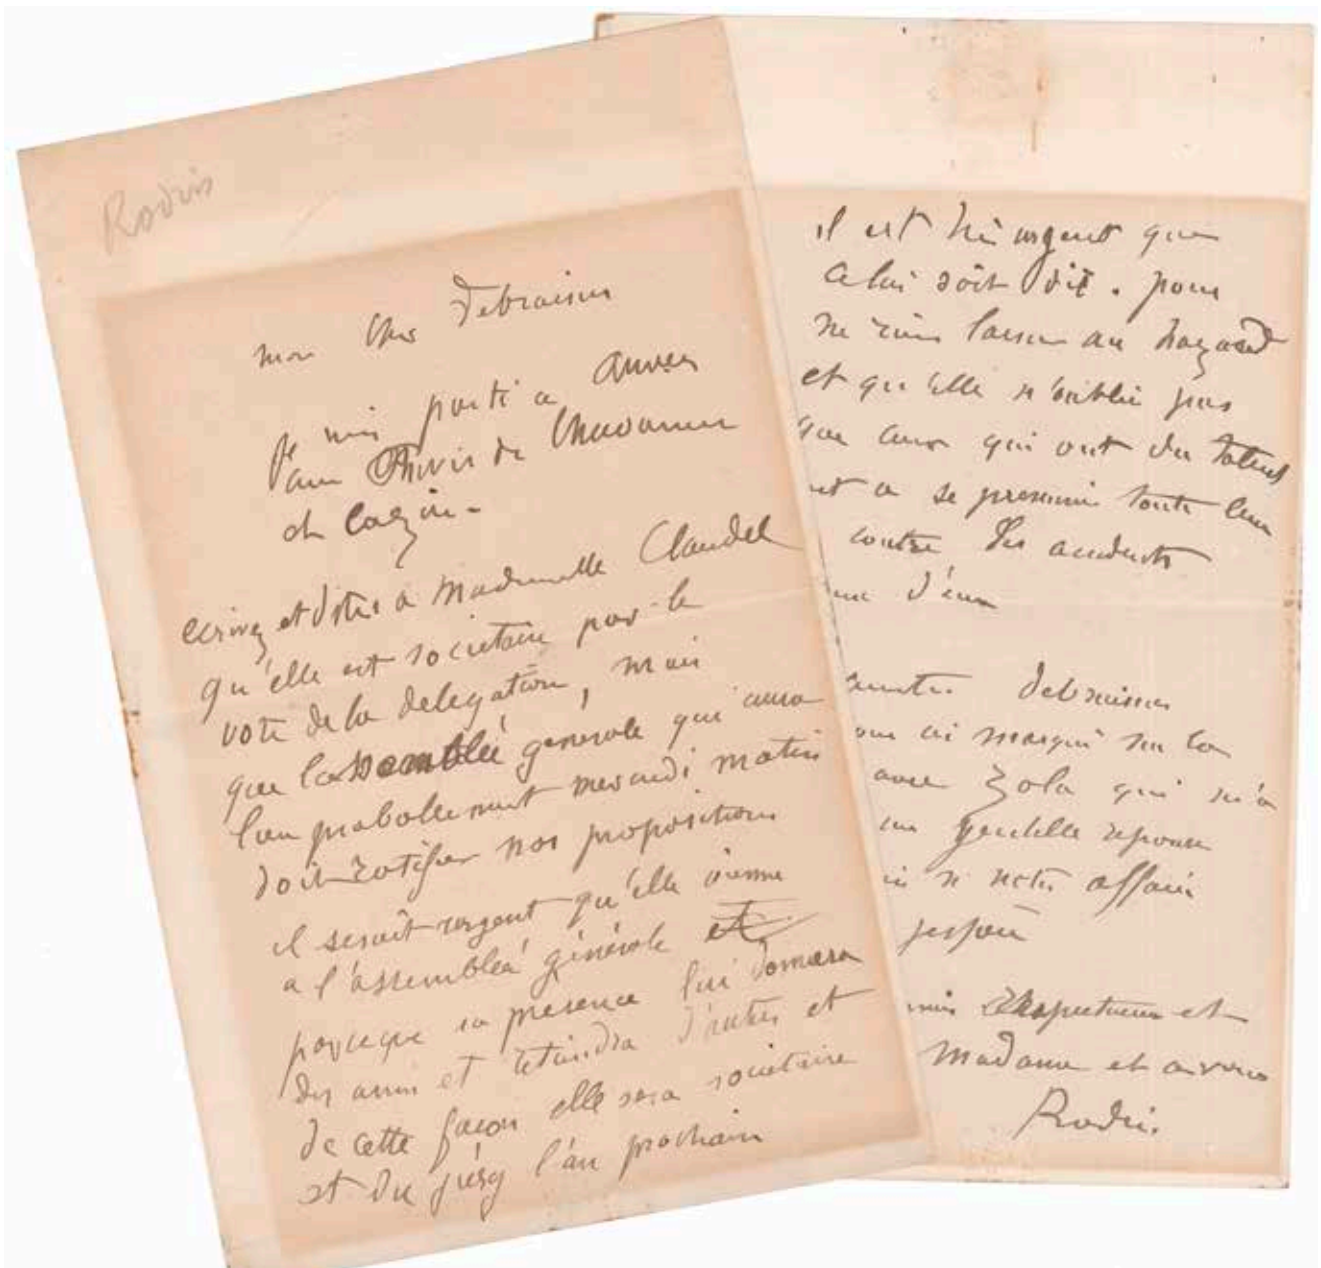 Rodin
mon cher Debraisne
Je suis parti a Anvers
avec Puvis de Chavannes
et Cazin -
ecrivez et dites a Mademelle Claudel
qu'elle est societaire par le
vote de la delegation, mais
que lassemblée generale qui aura
lieu probablement mercredi matin
doit ratifier nos propositions
il serait urgent qu'elle vienne
a l'assemblée générale et
parceque sa presence lui donnera
des amis et retiendra d'autres et
de cette façon elle sera societaire
et du jury l'an prochain
il est très urgent que
celui soit dit. pour
ne rien laisser au hazard
et qu'elle n'oublie pas
que ceux qui ont du talent
ont a se premunir toute leur
contre les accidents
d'eux
Debraisne
ai marqué sur la
avec Zola qui m'a
une gentille reponse
si notre affaire
jespere
respectueux et
Madame et a vous
Rodin.